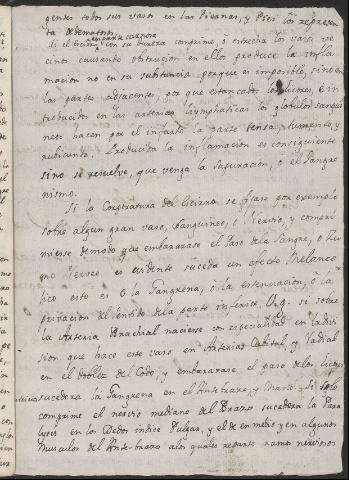 gentes todo sus vasos en las Piernas, y Pies los represen
ta edematosos.
Si el Scirro en dicha cuxtura con su dureza comprime, o estrecha los vasos ve
cinos causando obstrucion en ellos produce la infla
macion no en su substancia porque es imposible, sino en
las partes adjacentes, por que estancados los licores, e in
troducidos en las arterias lymphaticas los globulos sangui
neos hacen por el infarto la parte tensa, tumente, y
rubicunda. Producida la inflamacion es consiguiente
sino se resuelve, que venga la supuracion, o el Pangre
nismo.
Si la Coyuctura del Scirro se fixase por exemplo
sobre algun gran vaso, sanguineo, o Nervio, y compri
miese de modo que embarazase el Paso de la Sangre, o Xu
go Nerveo, es evidente suceda un efecto Melanco
lico esto es o la Gangrena, o la extenuacion, o la
privacion del sentido de la parte inferior. V.g. si sobre
la Arteria Brachial naciese con especialidad en la divi
sion que hace este vaso en Arterias Cubital, y Radial
en el doblez del Codo, y embarazase, el paso de los licores
sucedera la Gangrena en el Antebrazo y Mano. Si solo
comprime el nervio mediano del Brazo sucedera la Para
lysis en los Dedos indice Pulgar, y el de en medio y en algunos
Musculos del Ante-brazo alos quales reparte ramos nerviosos